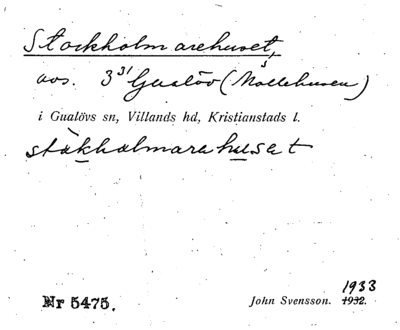 Stockholmarehuset,
avs. 3³¹ Gualöv (Möllehusen)
i Gualövs sn, Villands hd, Kristianstads l.
ståkhålmarahuset
1933
Nr 5475. John Svensson. 1932.